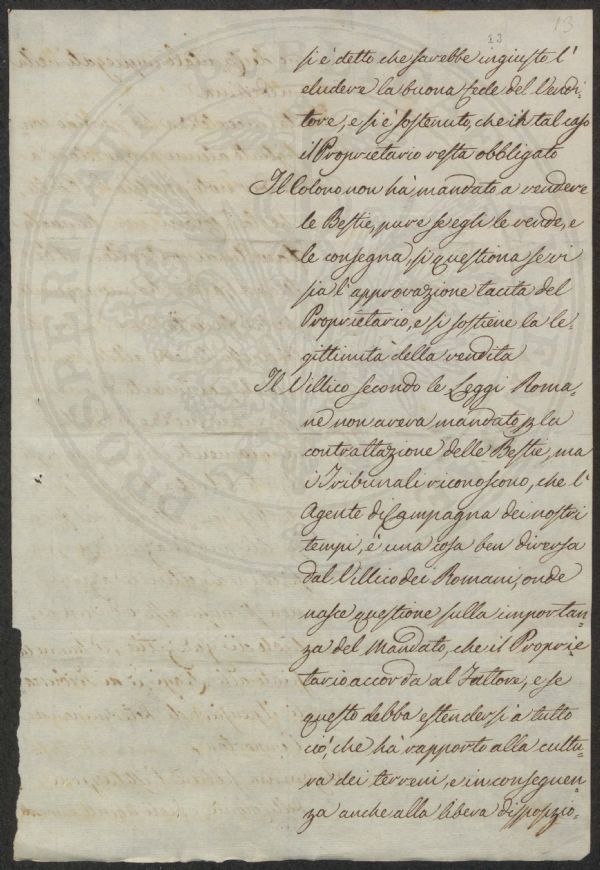 13
13
si è detto che sarebbe ingiusto l'
eludere la buona fede del Vendi-
tore, e si è sostenuto, che in tal caso
il Proprietario resta obbligato
Il Colono non hà mandato a vendere
le Bestie, pure se egli le vende, e
le consegna, si questiona se vi
sia l'approvazione tacita del
Proprietario, e si sostiene la le-
gittimità della vendita
Il Villico secondo le Leggi Roma-
ne non aveva mandato p la
contrattazione delle Bestie, ma
i Tribunali riconoscono, che l'
Agente di Campagna dei nostri
tempi, è una cosa ben diversa
dal Villico dei Romani, onde
nasce questione sulla importan-
za del Mandato, che il Proprie
tario accorda al Fattore, e se
questo debba estendersi à tutto
ciò, che hà rapporto alla cultu-
ra dei terreni, e in conseguen-
za anche alla libera disposizio-